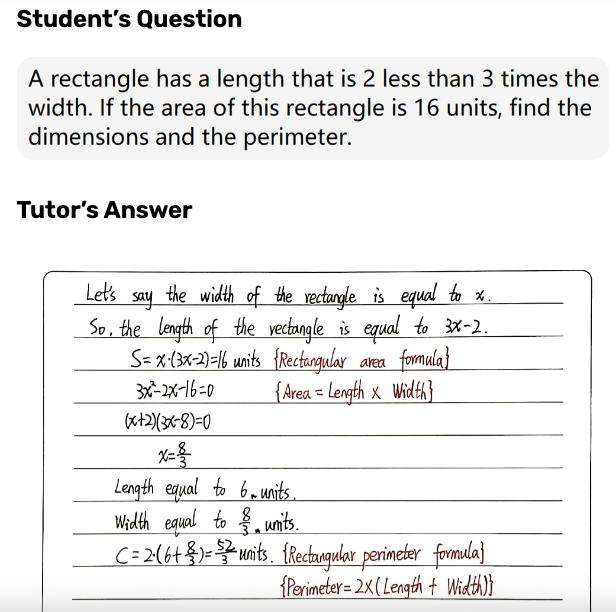 Student's Question
A rectangle has a length that is 2 less than 3 times the
width. If the area of this rectangle is 16 units, find the
dimensions and the perimeter.
Tutor's Answer
Let's say the width of the rectangle is equal to x.
So, the length of the rectangle is equal to 3x-2.
S=x·(3x-2)=16 units {Rectangular area formula}
3x²-2x-16=0 {Area = Length × Width}
(x+2)(3x-8)=0
x=8/3
Length equal to 6 units.
Width equal to 8/3 units.
C=2·(6+8/3)=52/3 units. {Rectangular perimeter formula}
{Perimeter=2×(Length + Width)}